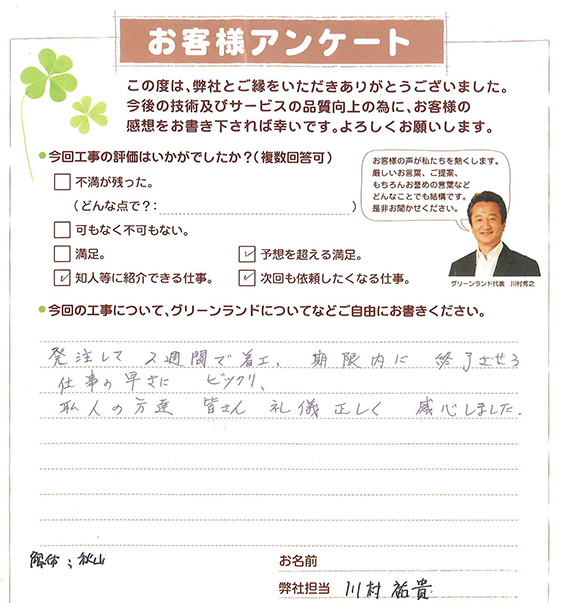 お客様アンケート
この度は、弊社とご縁をいただきありがとうございました。
今後の技術及びサービスの品質向上の為に、お客様の
感想をお書き下されば幸いです。よろしくお願いします。
●今回工事の評価はいかがでしたか?(複数回答可)
不満が残った。
(どんな点で?: )
可もなく不可もない。
満足。
✓ 予想を超える満足。
✓ 知人等に紹介できる仕事。
✓ 次回も依頼したくなる仕事。
お客様の声が私たちを熱くします。
厳しいお言葉、ご提案、
もちろんお誉めの言葉など
どんなことでも結構です。
是非お聞かせください。
グリーンランド代表 川村秀之
●今回の工事について、グリーンランドについてなどご自由にお書きください。
発注して 2週間で着工、期限内に 終了させる
仕事の早さに ビックリ、
人の方達 皆さん 礼儀正しく 感心しました.
解体;秋山
お名前
弊社担当 川村祐貴